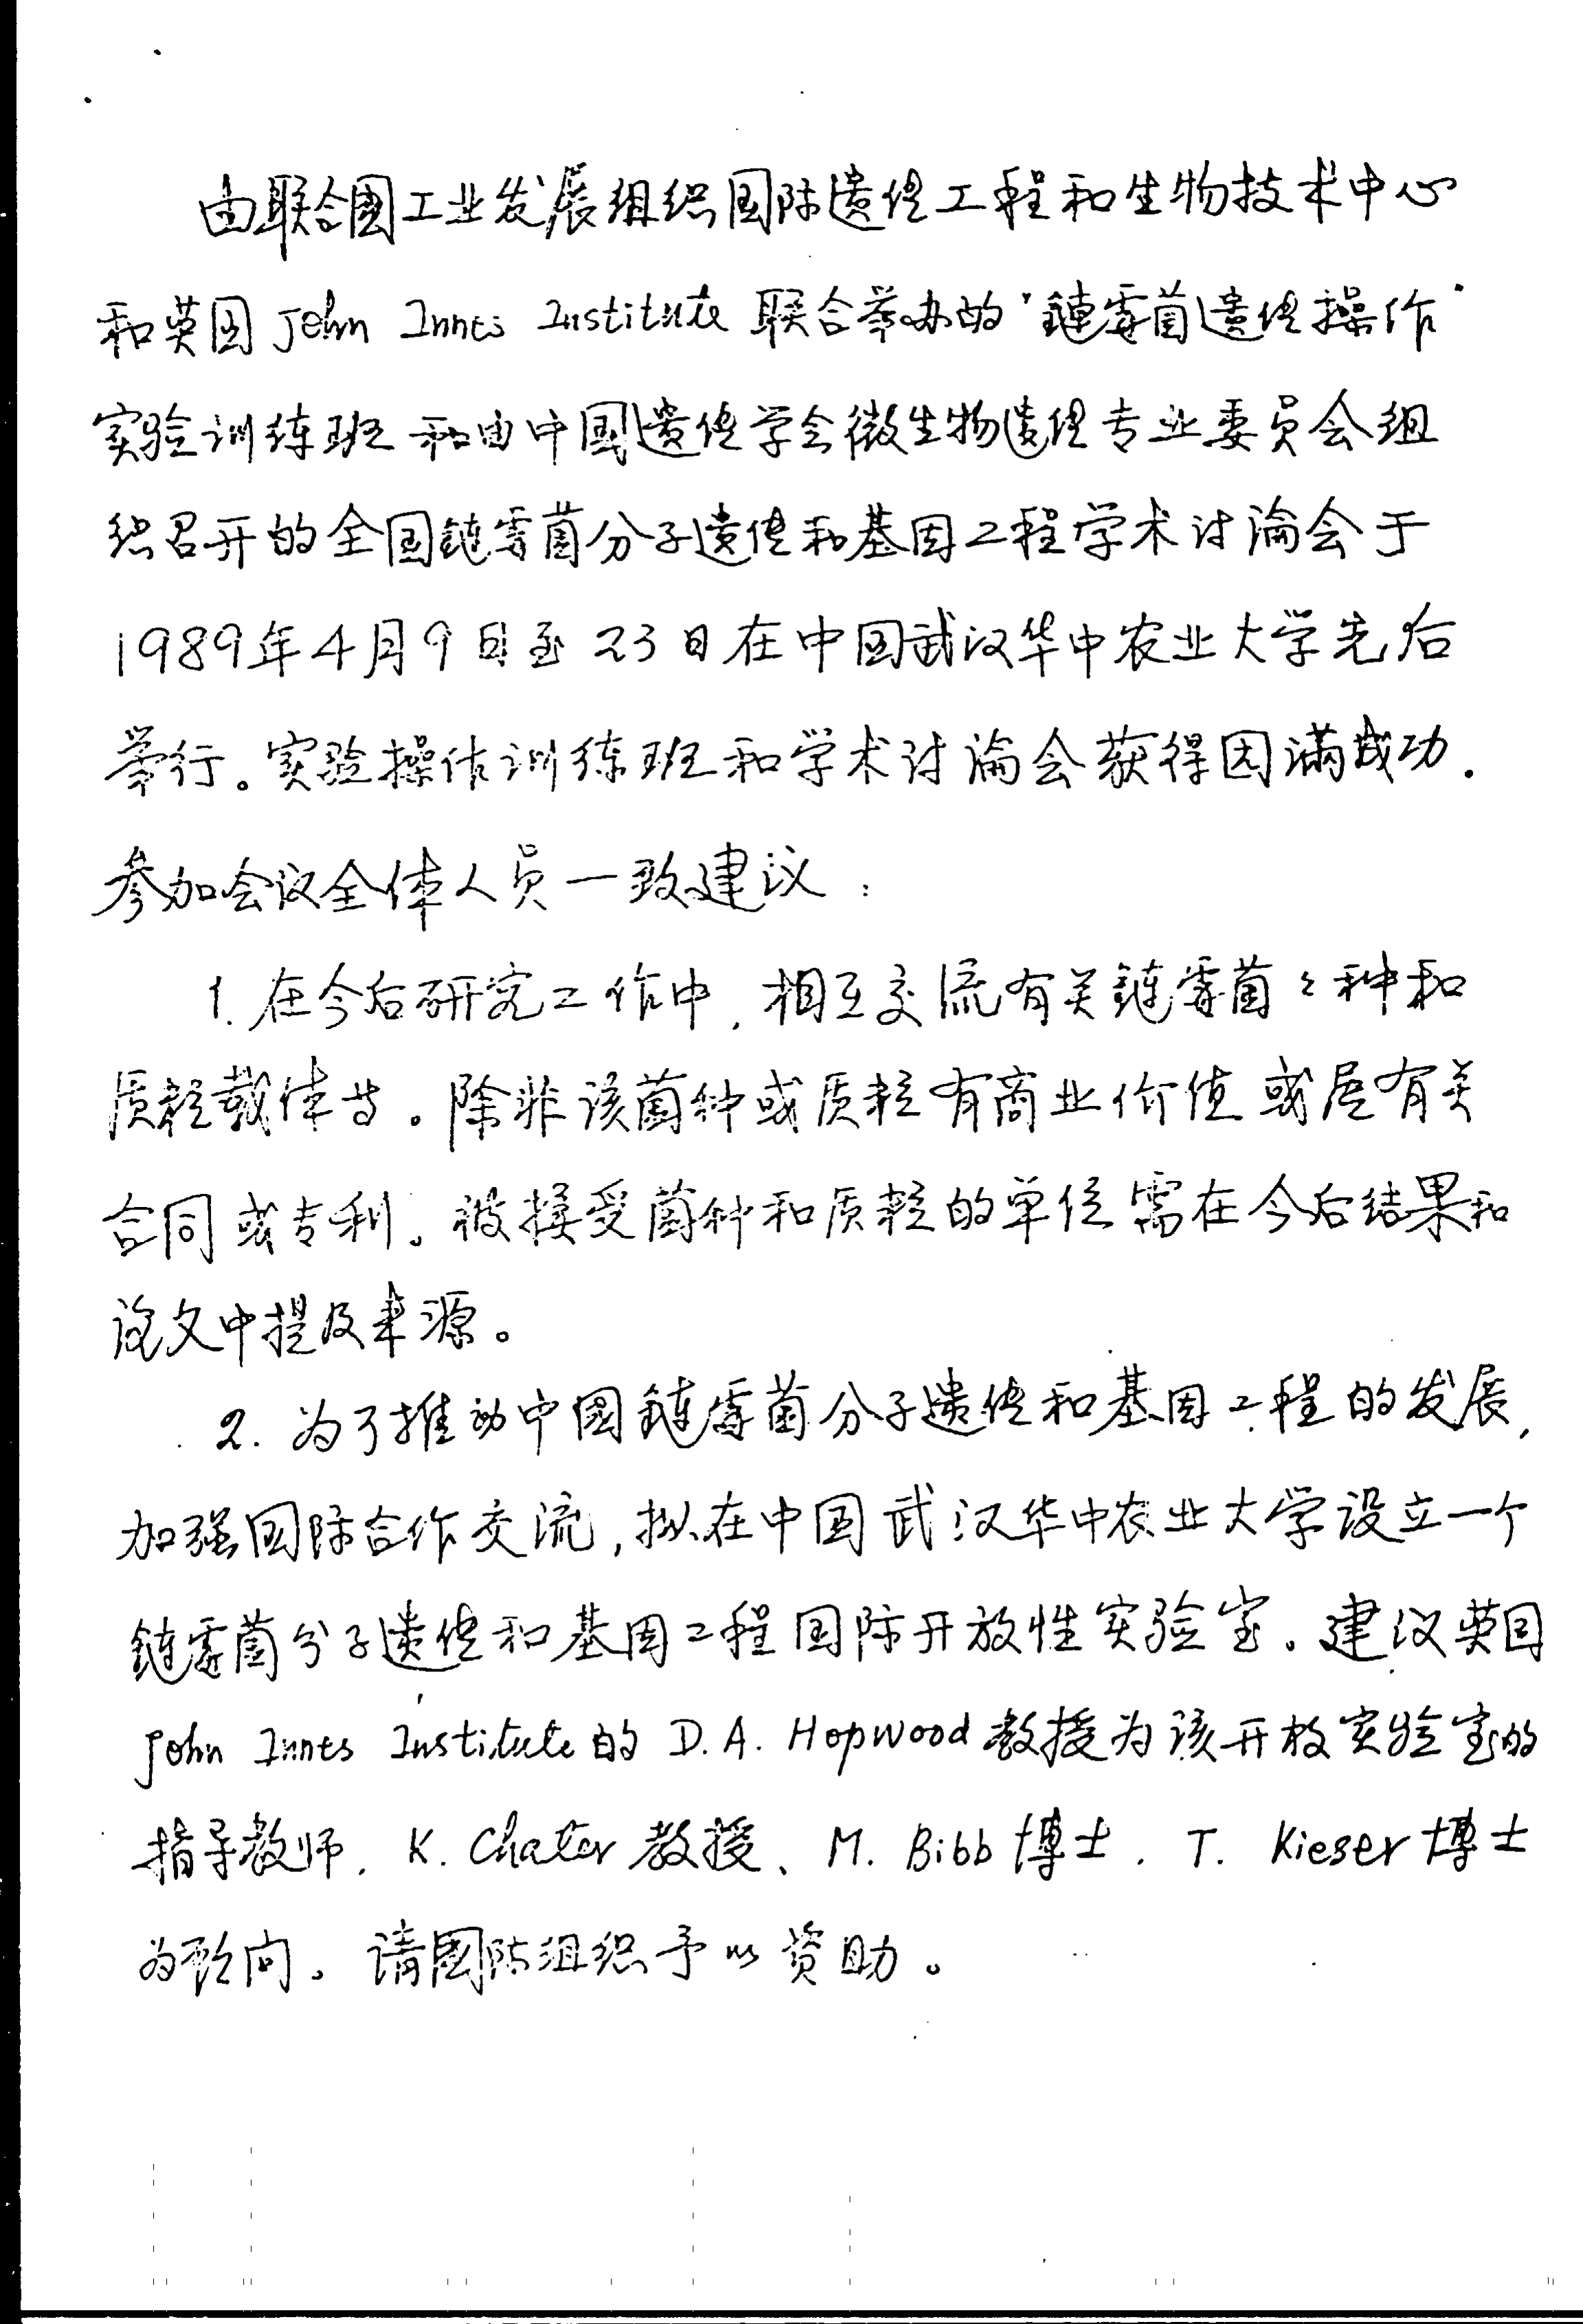 由联合國工业发展组织国际遗传工程和生物技术中心
和英国 John Innes Institute 联合举办的"鏈霉菌遗传操作"
实验训练班 和由中國遗传学会微生物遗传专业委员会组
织召开的全国鏈霉菌分子遗传和基因工程学术讨論会于
1989年4月9日至23日在中国武汉华中农业大学先后
举行。实验操作训练班和学术讨論会获得园滿成功.
参加会议全体人员一致建议:
1. 在今后研究工作中, 相互交流有关鏈霉菌々种和
质粒载体等。除非该菌种或质粒有商业价值或居有关
合同或专利。被接受菌种和质粒的单位需在今后结果和
论文中提及来源。
2. 为了推动中國鏈霉菌分子遗传和基因工程的发展,
加强国际合作交流,拟在中国武汉华中农业大学设立一个
鏈霉菌分子遗传和基因工程国际开放性实验室。建议英国
John Innes Institute的 D.A. Hopwood 教授为该开放实验室的
指导教师, K. Chater 教授、M. Bibb 博士, T. Kieser 博士
为顾问。请國际组织予以资助。